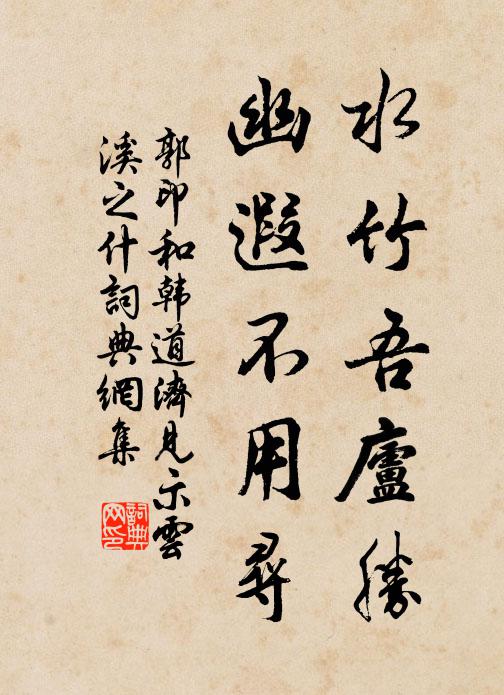 水竹吾廬勝
幽遐不用尋
郭印和韩道濟見示雲
溪之什詞典網集
詞典网印